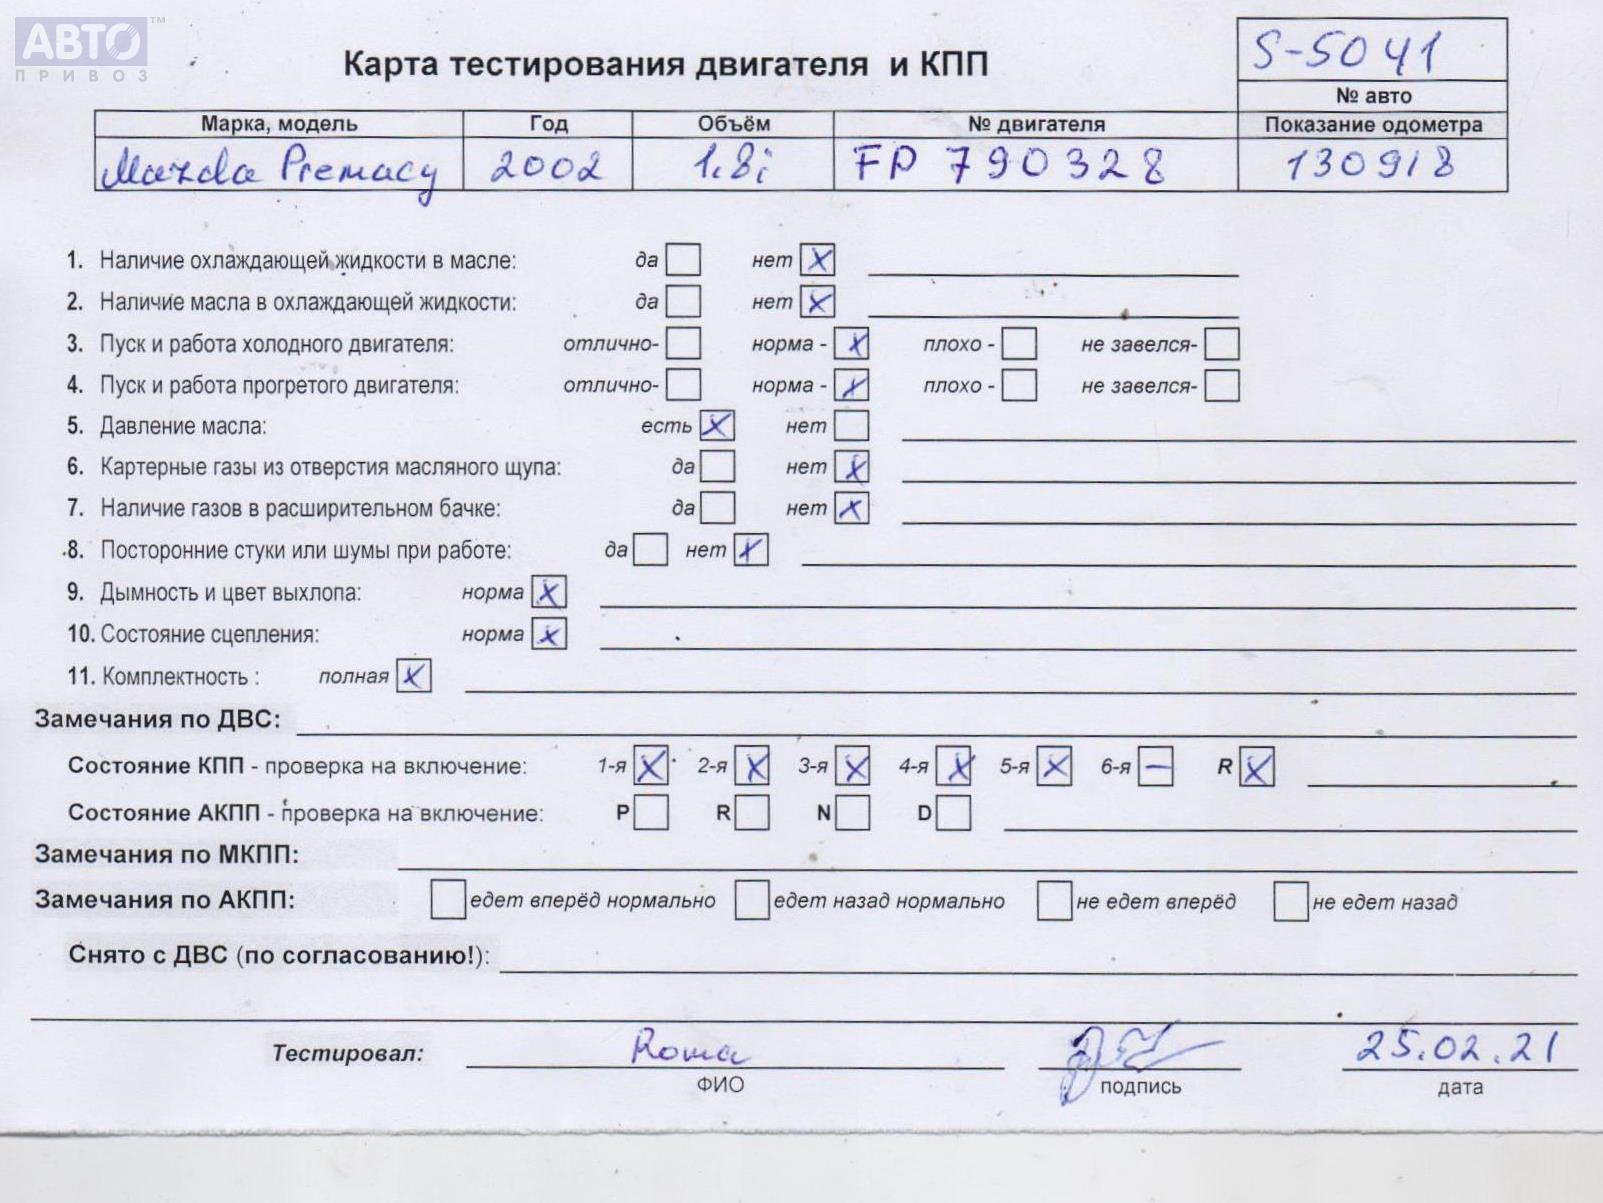 АВТО™
ПРИВОЗ
Карта тестирования двигателя и КПП
S-5041
№ авто
Марка, модель Год Объём № двигателя Показание одометра
Mazda Premacy 2002 1.8i FP 790328 130918
1. Наличие охлаждающей жидкости в масле: да нет X
2. Наличие масла в охлаждающей жидкости: да нет X
3. Пуск и работа холодного двигателя: отлично- норма - X плохо - не завелся-
4. Пуск и работа прогретого двигателя: отлично- норма - X плохо - не завелся-
5. Давление масла: есть X нет
6. Картерные газы из отверстия масляного щупа: да нет X
7. Наличие газов в расширительном бачке: да нет X
8. Посторонние стуки или шумы при работе: да нет X
9. Дымность и цвет выхлопа: норма X
10. Состояние сцепления: норма X
11. Комплектность : полная X
Замечания по ДВС:
Состояние КПП - проверка на включение: 1-я X 2-я X 3-я X 4-я X 5-я X 6-я — R X
Состояние АКПП - проверка на включение: P R N D
Замечания по МКПП:
Замечания по АКПП: едет вперёд нормально едет назад нормально не едет вперёд не едет назад
Снято с ДВС (по согласованию!):
Тестировал: Roma 25.02.21
ФИО подпись дата